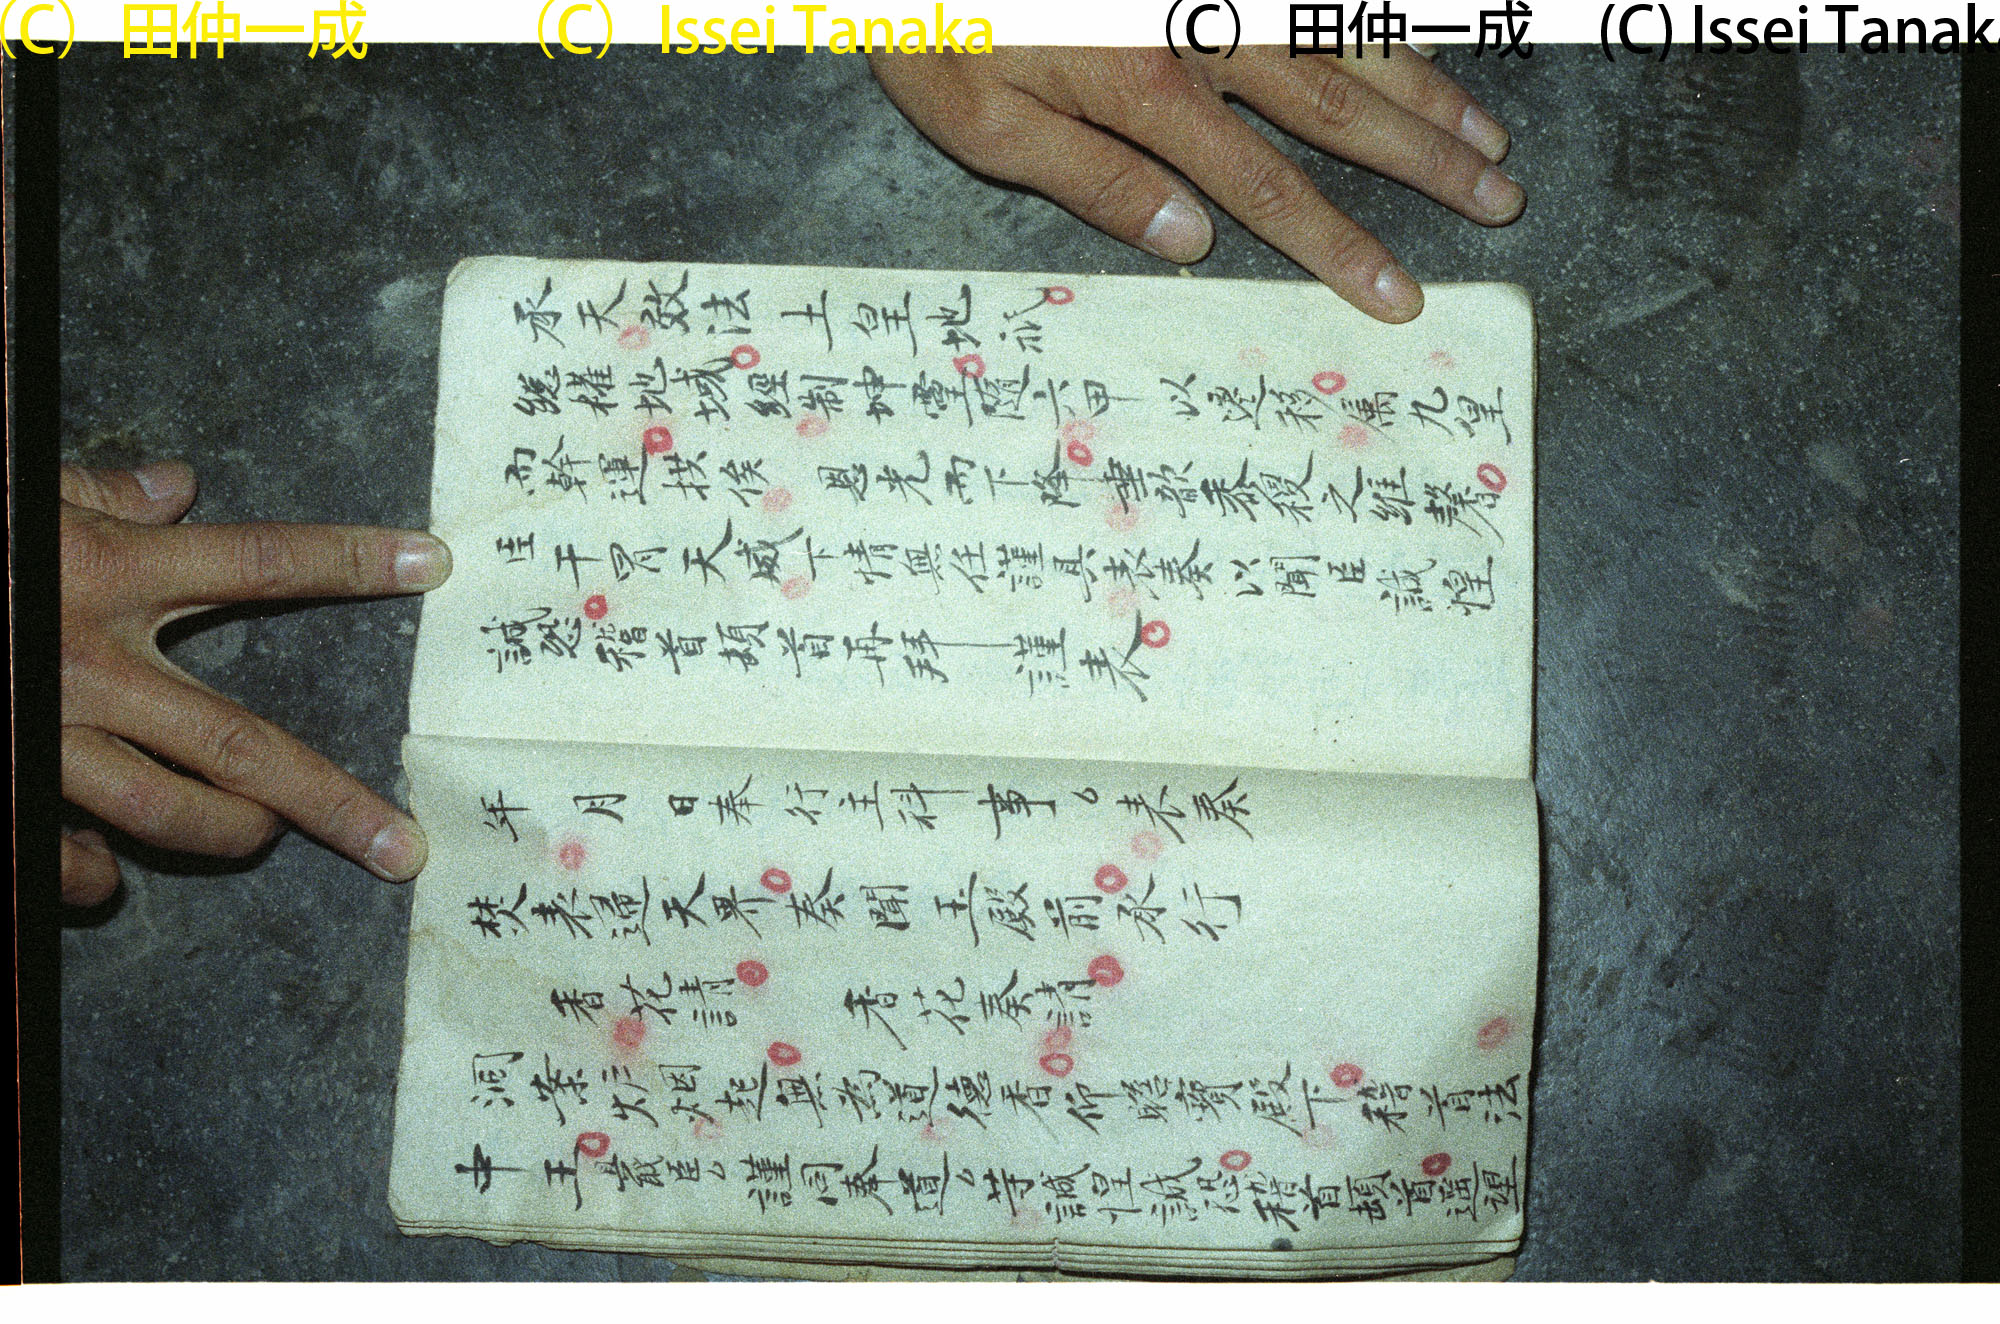 (C) 田仲一成 (C) Issei Tanaka (C) 田仲一成 (C) Issei Tanaka
承天效法土皇地祇
總權地域經制坤靈隨六甲以遷移 九皇
而幹運拱俟恩光而下降 之維馨
臣干冒天威下情無任謹具表奏以聞臣誠惶
誠恐稽首頓首再拜 謹表
年 月 日奉行主科事 表奏
焚表通天界奏聞玉殿前承行
香花請 香花奏請
洞案炉烟起無為道德香仰瞻寶殿下稽首法
中王 臣 謹同奉道 等誠惶誠恐稽首頓首